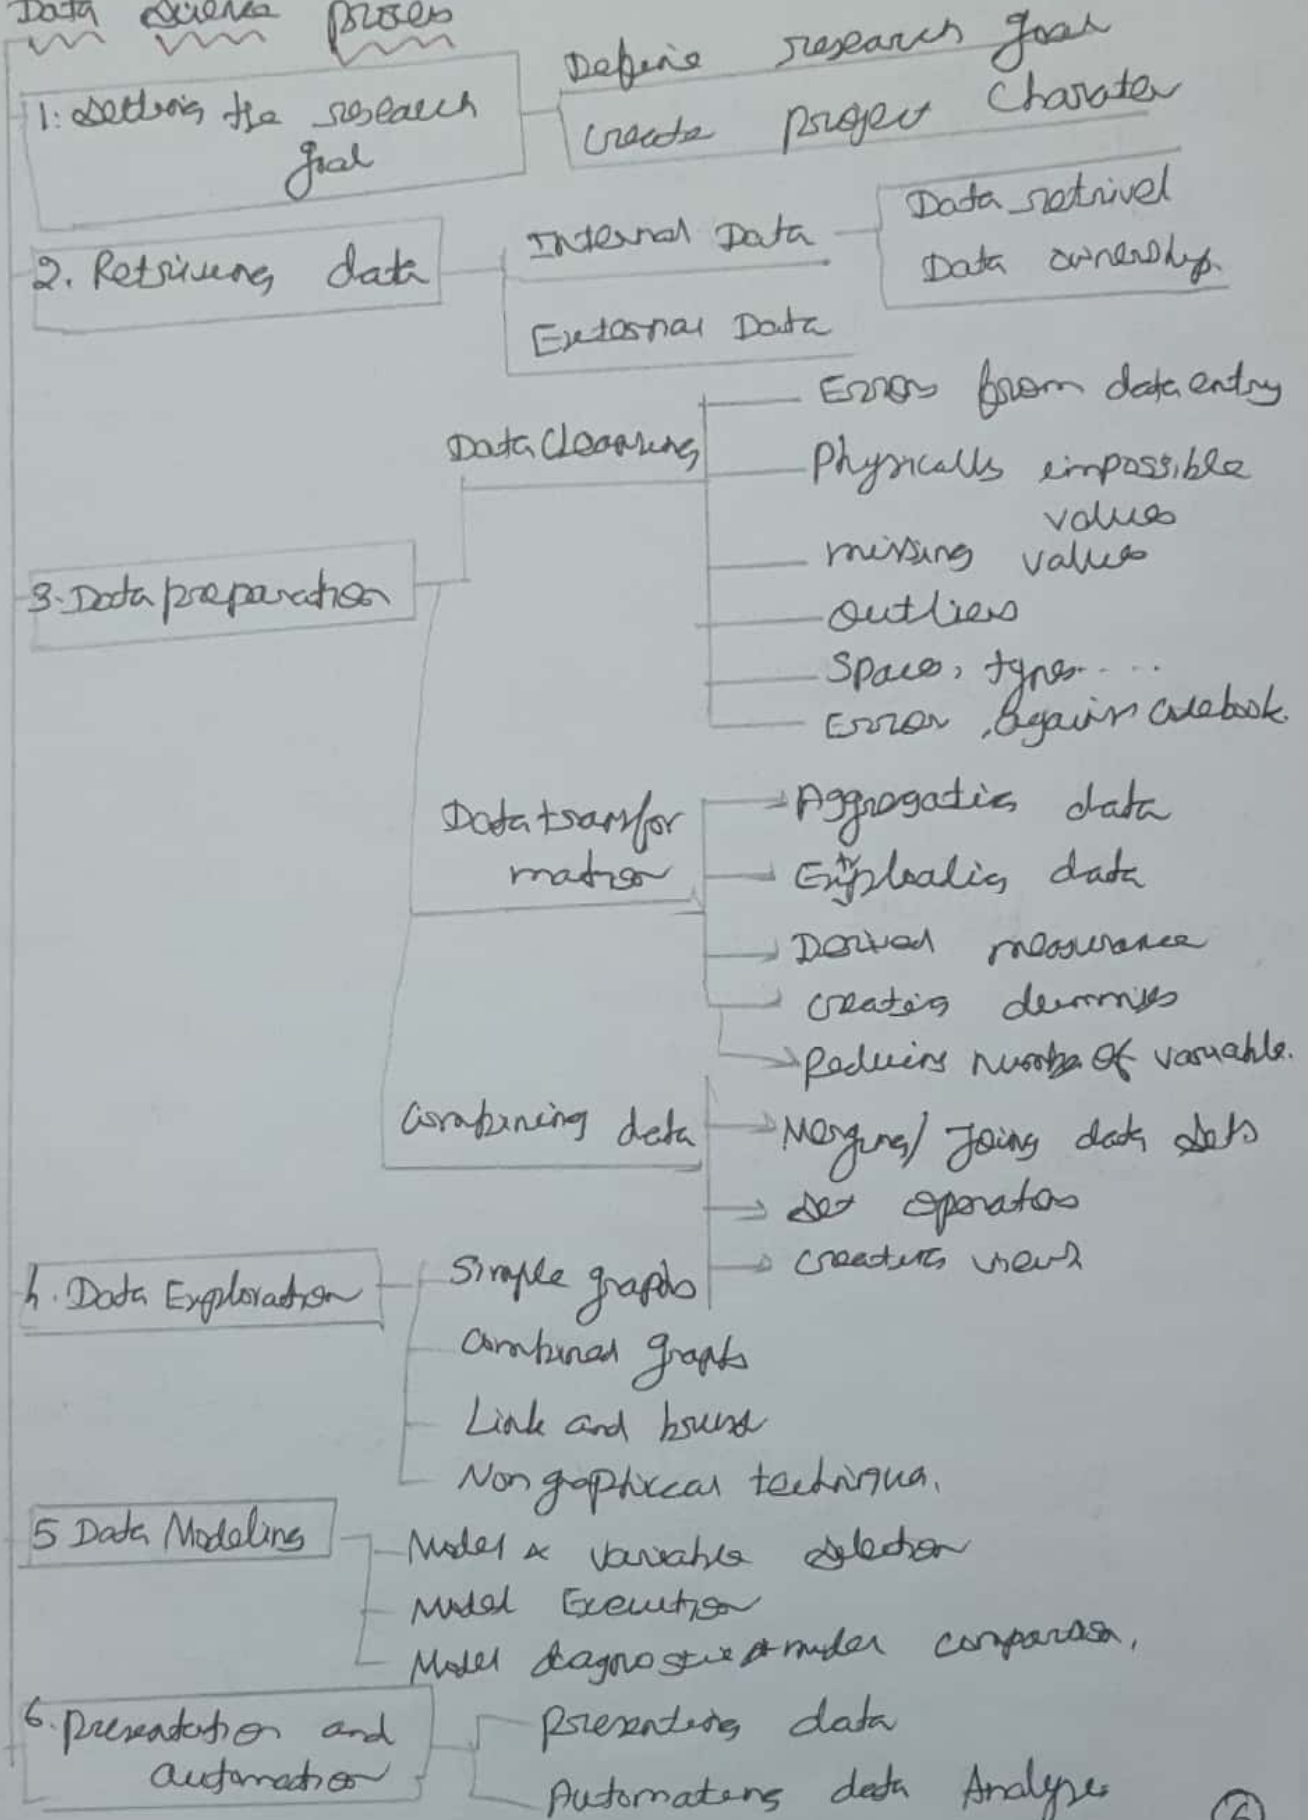 Data Science process
1. Setting the research
goal
Define research goal
create project Charater
2. Retriving data
Internal Data
Data retrivel
Data ownership
External Data
3. Data preparation
Data Cleansing
Error from data entry
Physically impossible
values
missing values
outliers
Spaces, types.....
Error, against codebook.
Data transfor
mation
Aggregating data
data
Derived measurance
creating dummies
Reducing number of variable.
Combining data
Merging/ Joing data sets
Set operators
creating views
4. Data Exploration
Simple graphs
Combined graphs
Link and brush
Non graphical technique.
5 Data Modeling
Model & variable selection
Model Execution
Model diagnostic & model comparason,
6. Presentation and
automation
Presenting data
Automating data Analyses
6